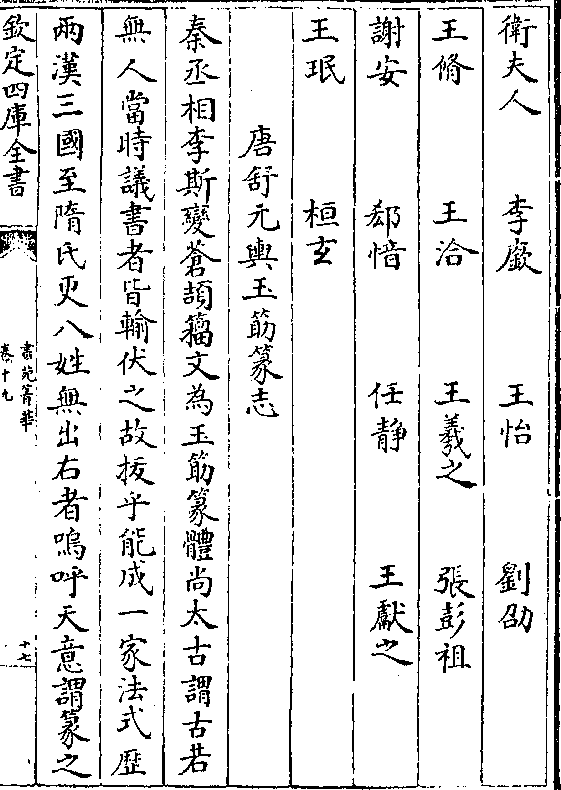 衛夫人 李嶔 王怡 劉劭
王脩 王洽 王羲之 張彭祖
謝安 郄愔 任靜 王獻之
王珉 桓玄
唐舒元輿玉筯篆志
秦丞相李斯變蒼頡籀文為玉筯篆體尚太古謂古若
無人當時議書者皆輸伏之故拔乎能成一家法式歴
兩漢三國至隋氏更八姓無出右者嗚呼天意謂篆之
欽定四庫全書
書苑菁華
卷十九
十七